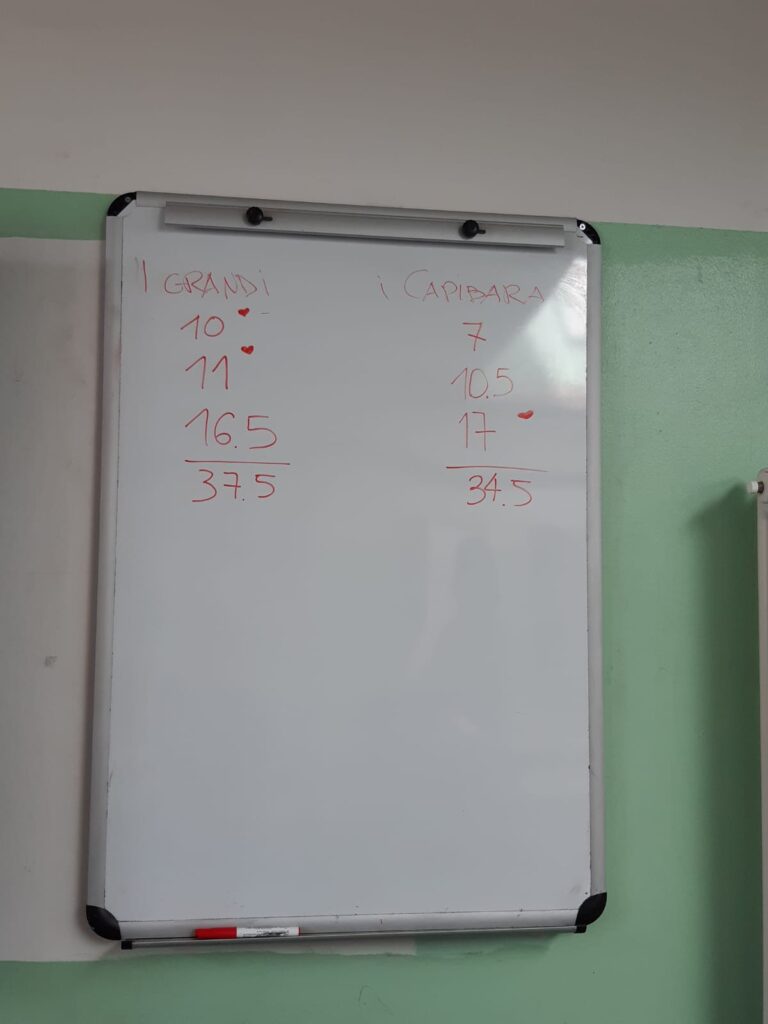 I GRANDI i CAPIBARA
10 ♥ 7
11 ♥ 10.5
16.5 17 ♥
37.5 34.5